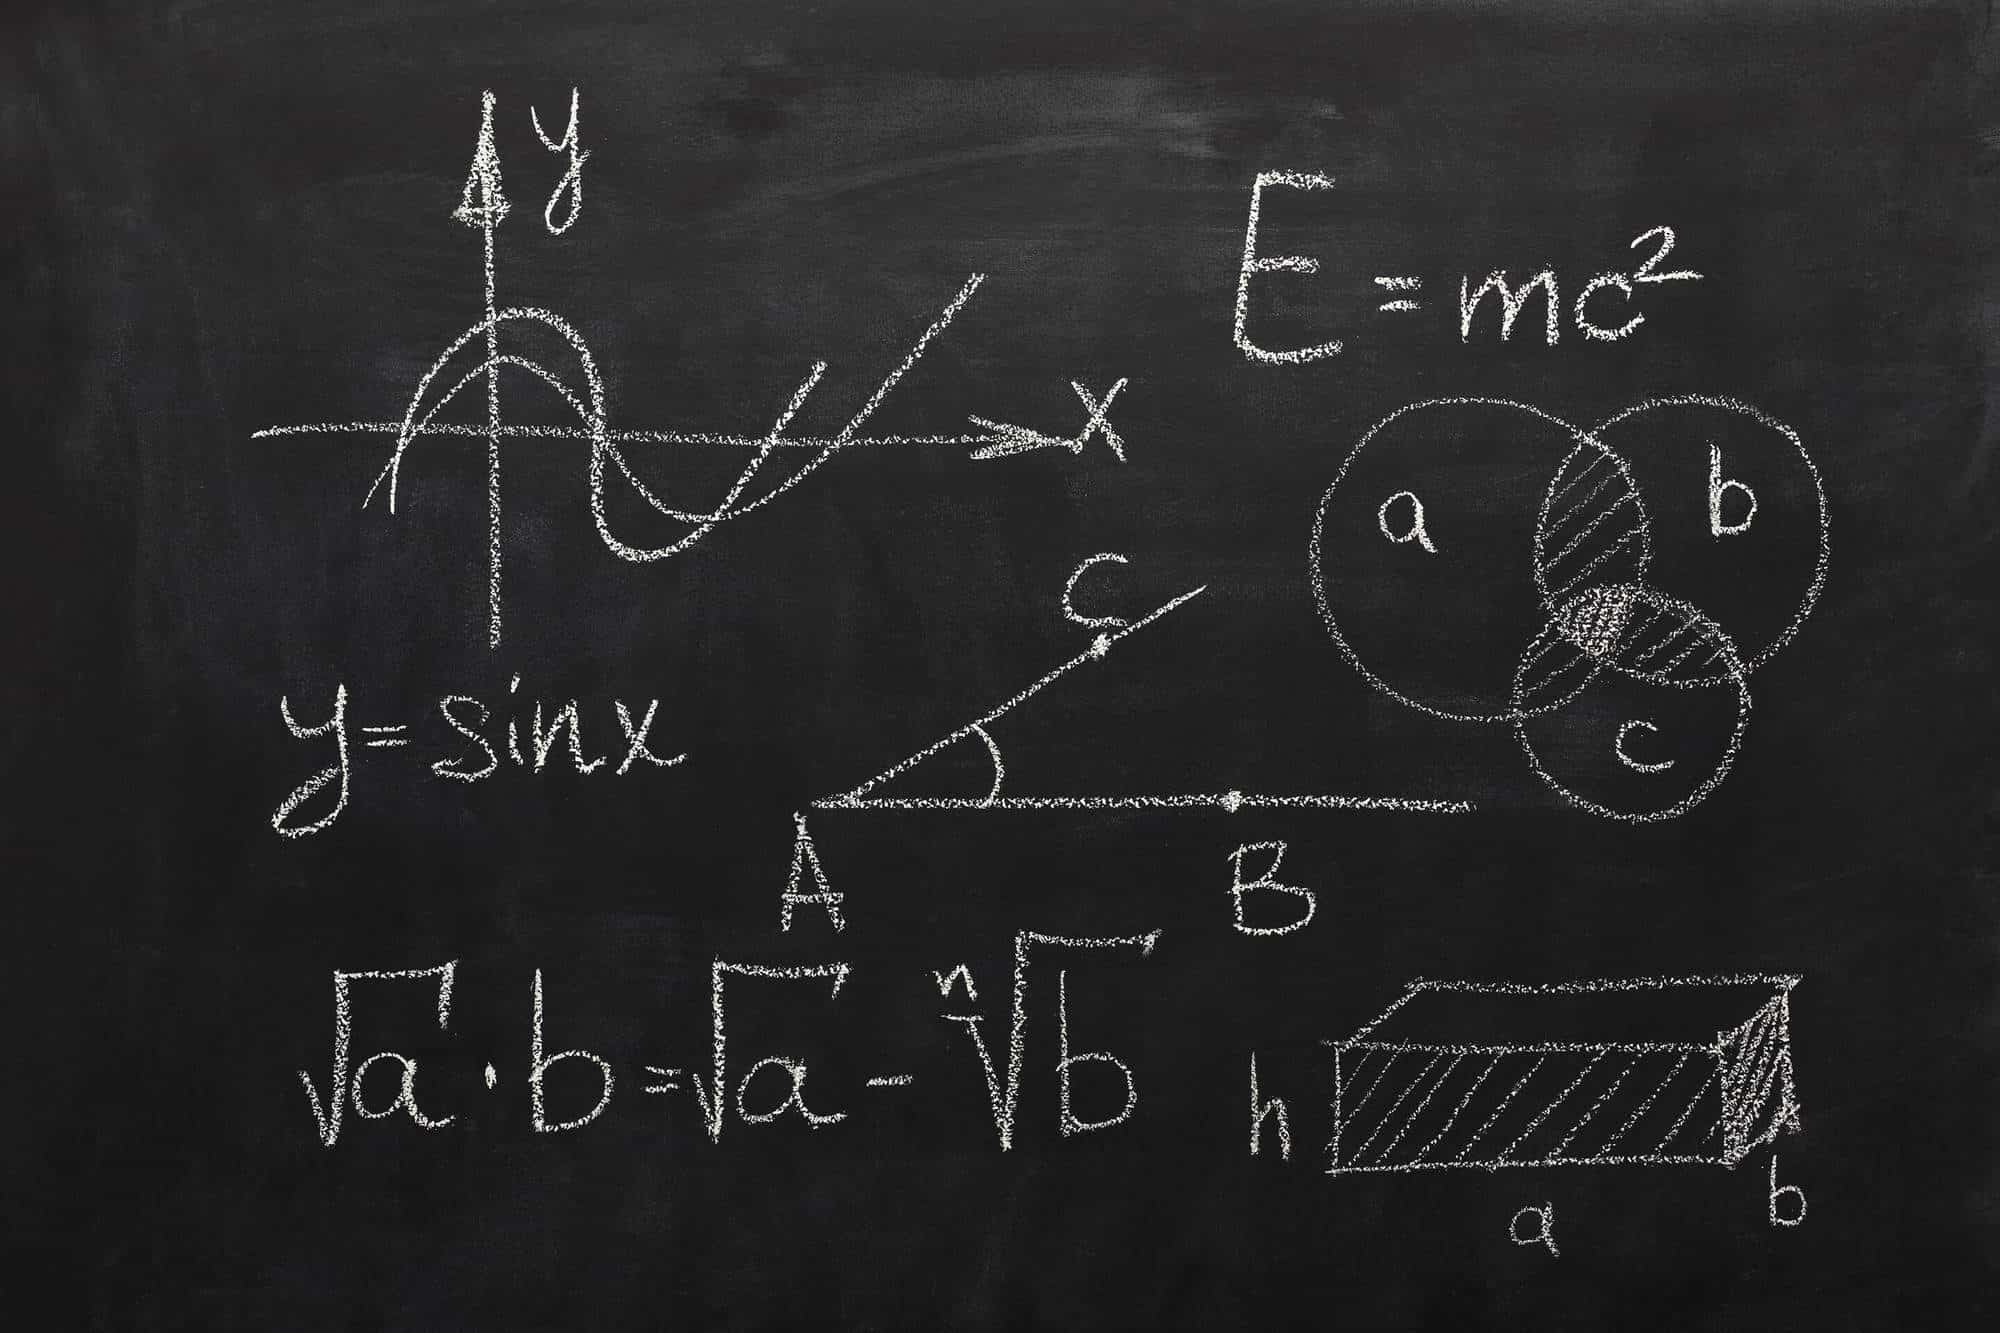 y
E = mc²
x
a
b
C
c
y = sinx
A
B
√a · b = √a - ⁿ√b
h
a
b